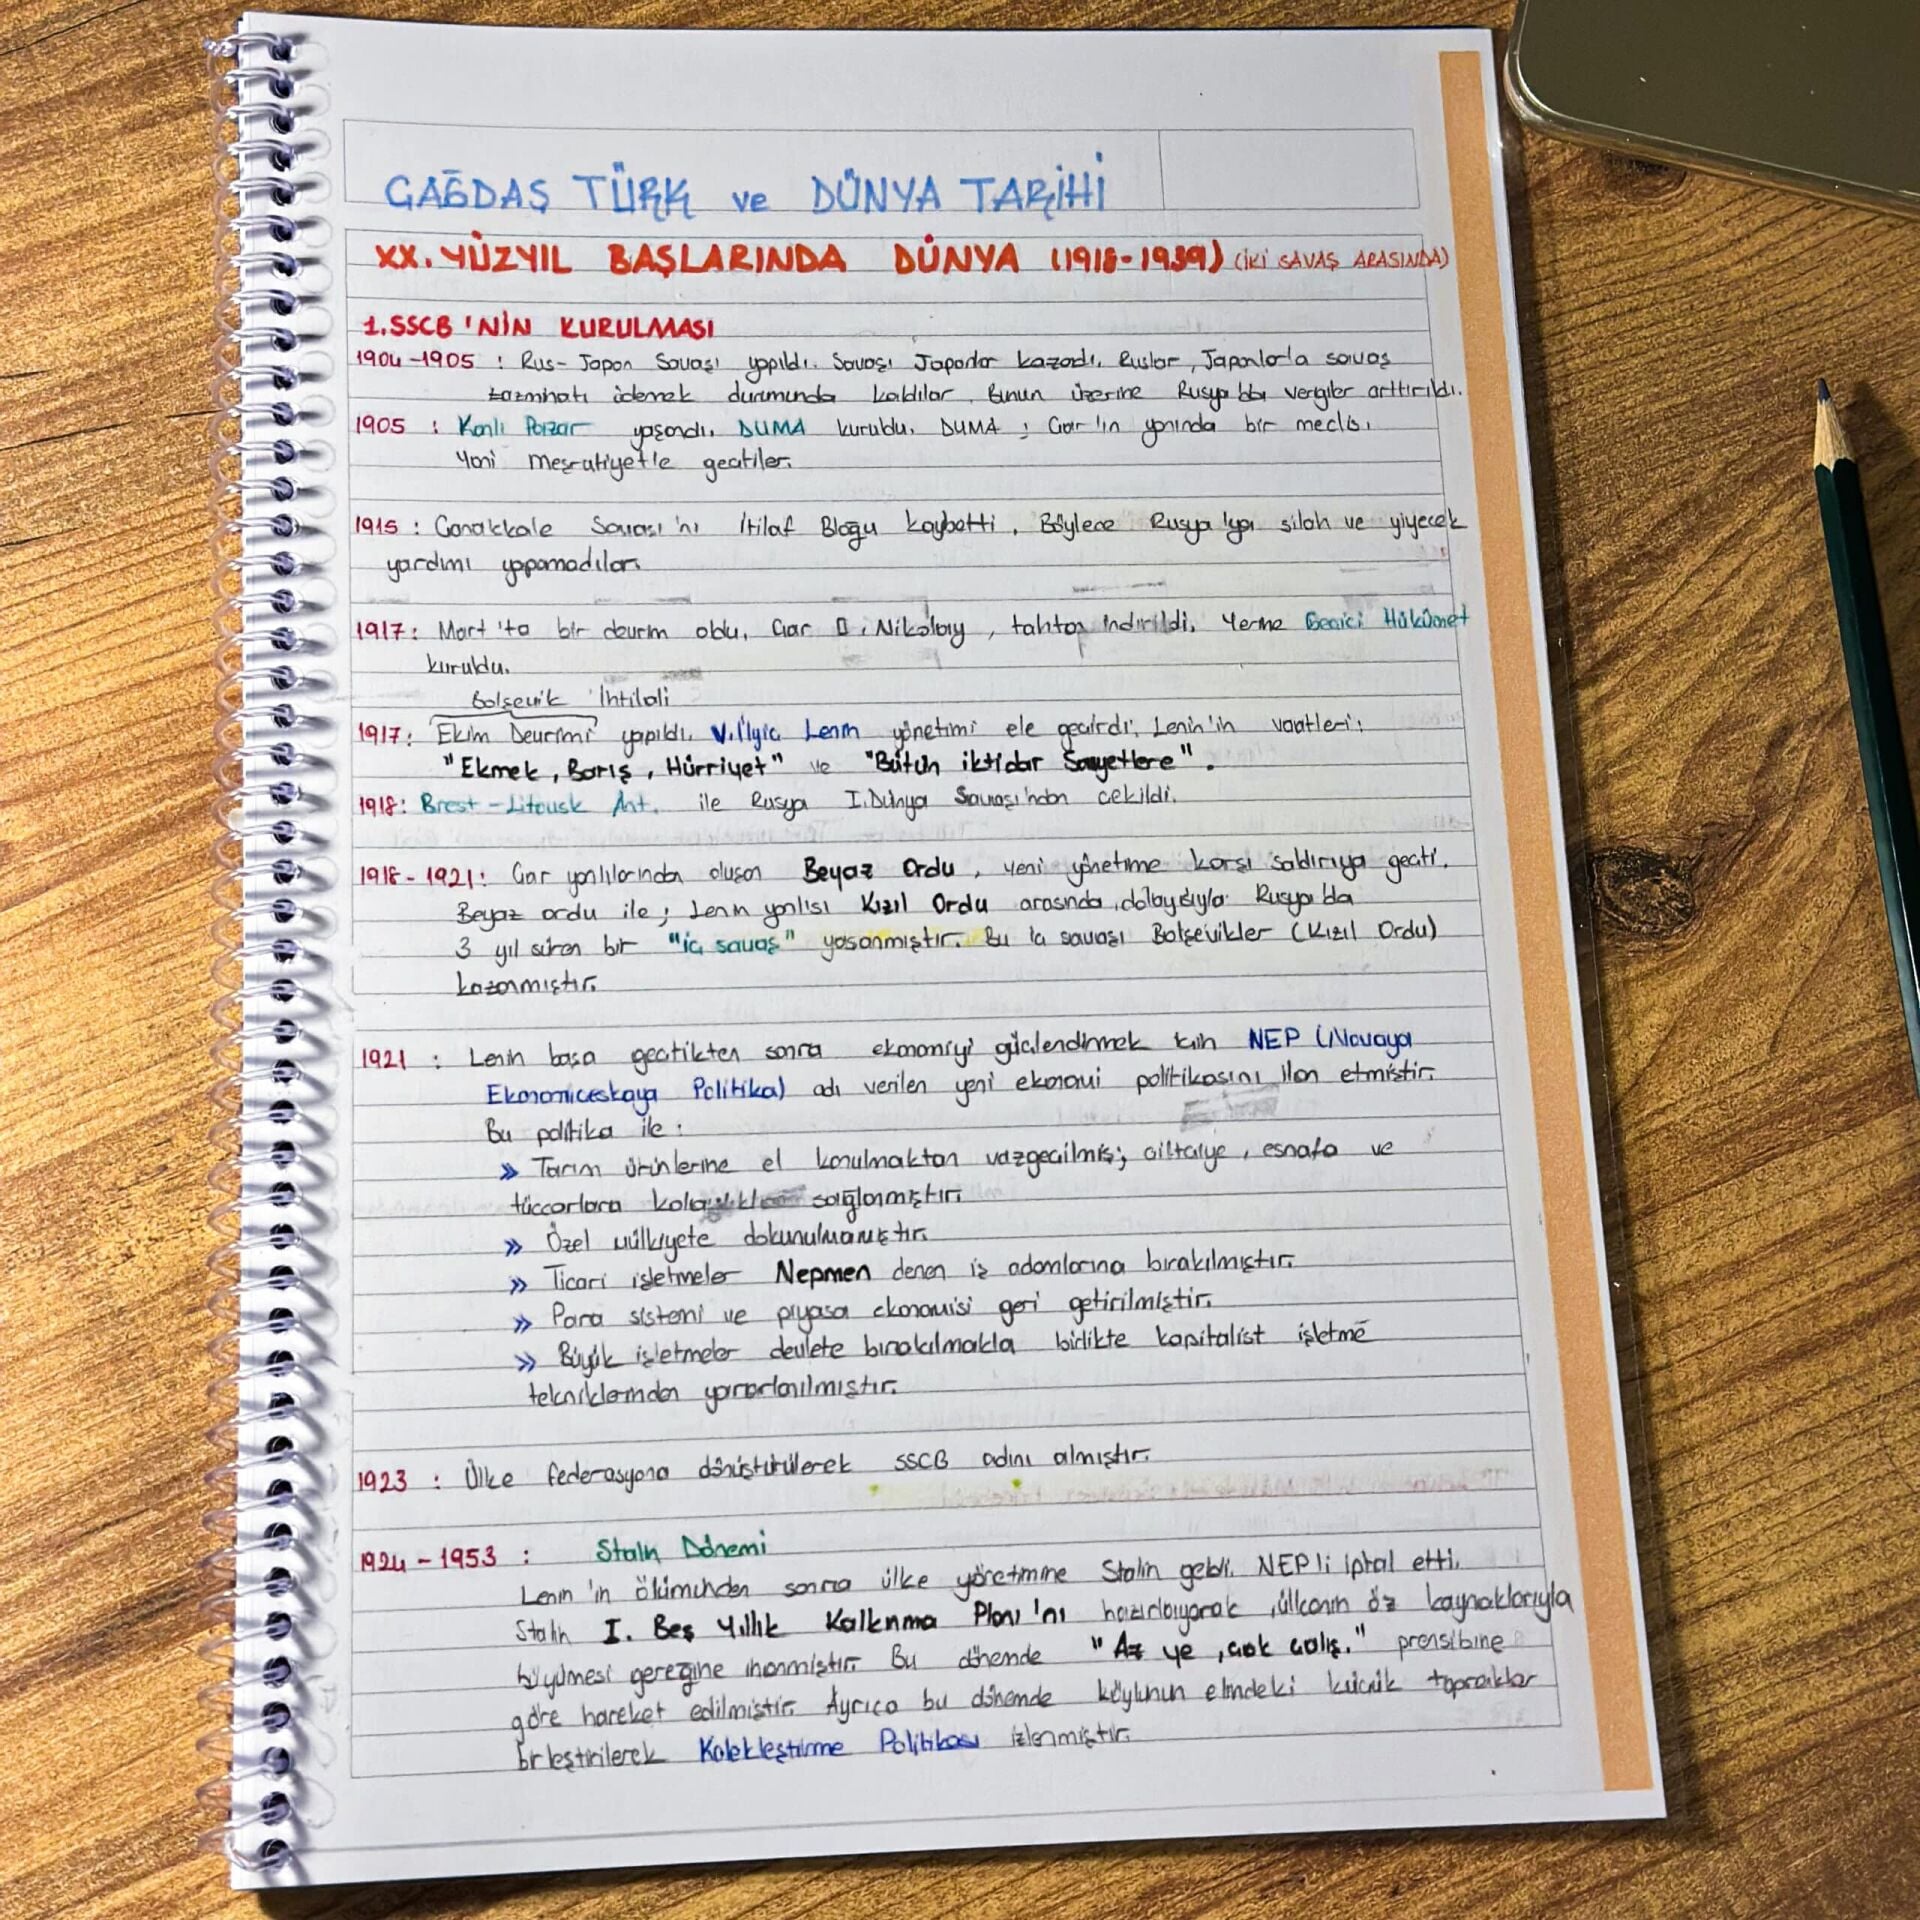 ÇAĞDAŞ TÜRK ve DÜNYA TARİHİ
XX. YÜZYIL BAŞLARINDA DÜNYA (1918-1939) (İKİ SAVAŞ ARASINDA)
1. SSCB'NİN KURULMASI
1904-1905 : Rus-Japon Savaşı yapıldı. Savaşı Japonlar kazandı. Ruslar, Japonlarla savaş
tazminatı ödemek durumunda kaldılar. Bunun üzerine Rusya'da vergiler arttırıldı.
1905 : Kanlı Pazar yaşandı. DUMA kuruldu. DUMA ; Çar'ın yanında bir meclis.
Yani meşrutiyet'e geçtiler.
1915 : Çanakkale Savaşı'nı İtilaf Bloğu kaybetti. Böylece Rusya'ya silah ve yiyecek
yardımı yapamadılar.
1917 : Mart'ta bir devrim oldu. Çar II. Nikolay, tahttan indirildi. Yerine Geçici Hükümet
kuruldu.
Bolşevik İhtilali
1917 : Ekim Devrimi yapıldı. V. İlyiç Lenin yönetimi ele geçirdi. Lenin'in vaatleri :
"Ekmek, Barış, Hürriyet" ve "Bütün iktidar Sovyetlere".
1918 : Brest-Litovsk Ant. ile Rusya I. Dünya Savaşı'ndan çekildi.
1918-1921 : Çar yanlılarından oluşan Beyaz Ordu, yeni yönetime karşı saldırıya geçti.
Beyaz ordu ile ; Lenin yanlısı Kızıl Ordu arasında, dolayısıyla Rusya'da
3 yıl süren bir "iç savaş" yaşanmıştır. Bu iç savaşı Bolşevikler (Kızıl Ordu)
kazanmıştır.
1921 : Lenin başa geçtikten sonra ekonomiyi güçlendirmek için NEP (Novaya
Ekonomiceskaya Politika) adı verilen yeni ekonomi politikasını ilan etmiştir.
Bu politika ile :
» Tarım ürünlerine el konulmaktan vazgeçilmiş; çiftçiye, esnafa ve
tüccarlara kolaylıklar sağlanmıştır.
» Özel mülkiyete dokunulmamıştır.
» Ticari işletmeler Nepmen denen iş adamlarına bırakılmıştır.
» Para sistemi ve piyasa ekonomisi geri getirilmiştir.
» Büyük işletmeler devlete bırakılmakla birlikte kapitalist işletme
tekniklerinden yararlanılmıştır.
1923 : Ülke federasyona dönüştürülerek SSCB adını almıştır.
1924-1953 : Stalin Dönemi
Lenin'in ölümünden sonra ülke yönetimine Stalin geldi. NEP'i iptal etti.
Stalin I. Beş Yıllık Kalkınma Planı'nı hazırlayarak, ülkenin öz kaynaklarıyla
büyümesi gereğine inanmıştır. Bu dönemde "Az ye, çok çalış." prensibine
göre hareket edilmiştir. Ayrıca bu dönemde köylünün elindeki küçük topraklar
birleştirilerek Kolektleştirme Politikası izlenmiştir.